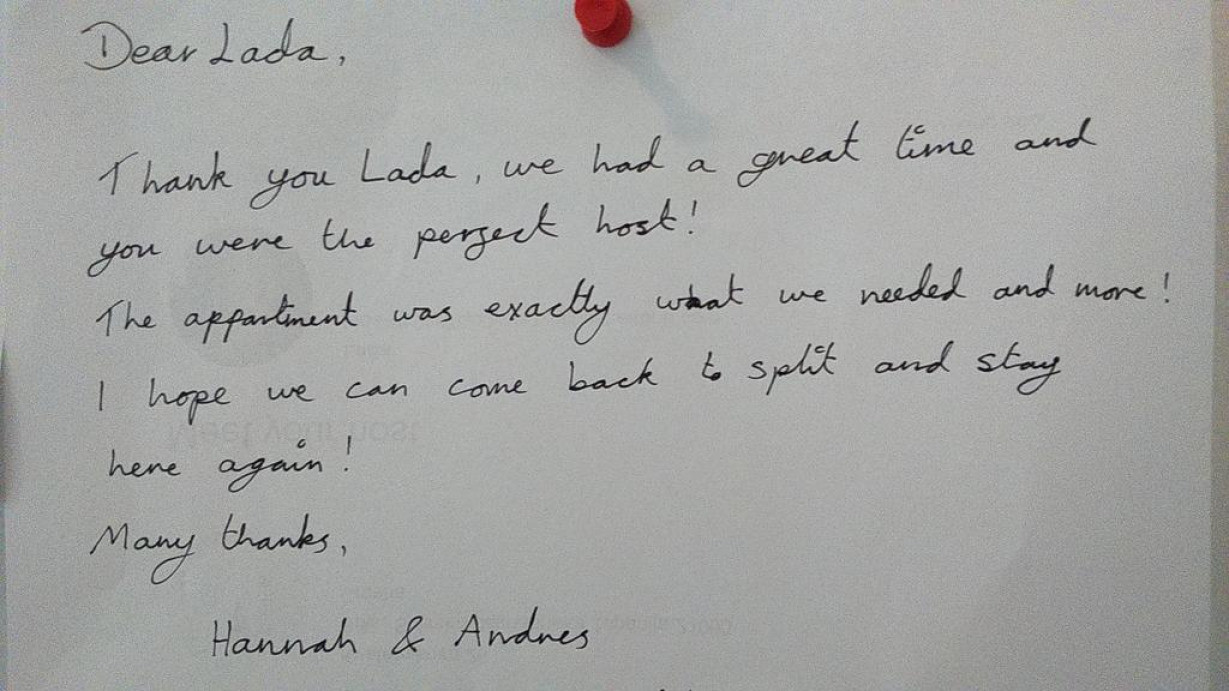 Dear Lada,
Thank you Lada, we had a great time and
you were the perfect host!
The appartment was exactly what we needed and more!
I hope we can come back to split and stay
here again!
Many thanks,
Hannah & Andres
Meet your host